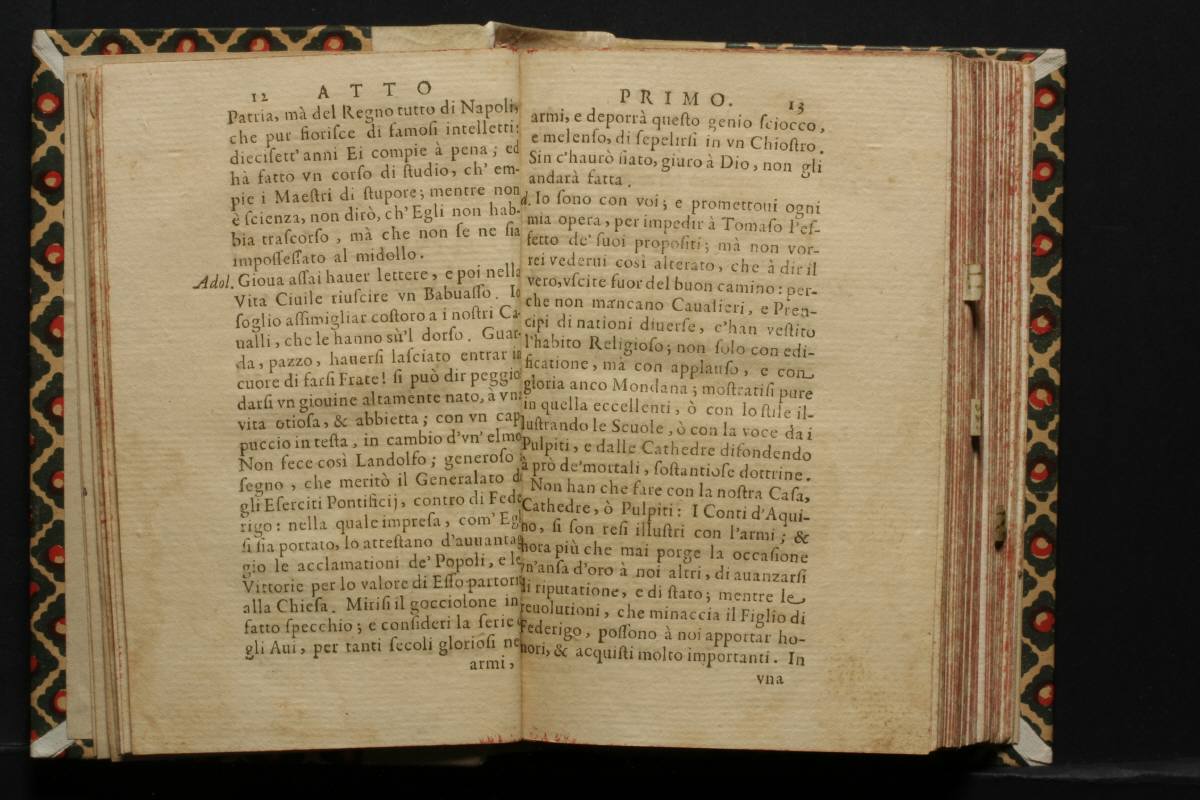 12 ATTO
Patria, mà del Regno tutto di Napoli,
che pur fiorisce di famosi intelletti:
diecisett'anni Ei compie à pena; ed
hà fatto vn corso di studio, ch'em-
pie i Maestri di stupore; mentre non
è scienza, non dirò, ch'Egli non hab-
bia trascorso, mà che non se ne sia
impossessato al midollo.
Adol. Gioua assai hauer lettere, e poi nella
Vita Ciuile riuscire vn Babuasso. Io
soglio assimigliar costoro a i nostri Ca-
ualli, che le hanno sù'l dorso. Guar-
da, pazzo, hauersi lasciato entrar in
cuore di farsi Frate! si può dir peggio
darsi vn giouine altamente nato, à vna
vita otiosa, & abbietta; con vn cap
puccio in testa, in cambio d'vn'elmo
Non fece così Landolfo; generoso
segno, che meritò il Generalato
gli Eserciti Pontificij, contro di Fede
rigo: nella quale impresa, com'Egli
si sia portato, lo attestano d'auuanta
gio le acclamationi de' Popoli, e le
Vittorie per lo valore di Esso partori
alla Chiesa. Mirisi il gocciolone in
fatto specchio; e consideri la serie
gli Aui, per tanti secoli gloriosi ne
armi,
PRIMO. 13
armi, e deporrà questo genio sciocco,
e melenso, di sepelirsi in vn Chiostro.
Sin c'haurò fiato, giuro à Dio, non gli
andarà fatta.
d. Io sono con voi; e promettoui ogni
mia opera, per impedir à Tomaso l'ef-
fetto de' suoi propositi; mà non vor-
rei vederui così alterato, che à dir il
vero, vscite fuor del buon camino: per-
che non mancano Caualieri, e Pren-
cipi di nationi diuerse, c'han vestito
l'habito Religioso; non solo con edi-
ficatione, mà con applauso, e con
gloria anco Mondana; mostratisi pure
in quella eccellenti, ò con lo stile il-
lustrando le Scuole, ò con la voce da i
Pulpiti, e dalle Cathedre difondendo
à prò de' mortali, sostantiose dottrine.
Non han che fare con la nostra Casa,
Cathedre, ò Pulpiti: I Conti d'Aqui-
no, si son resi illustri con l'armi; &
hora più che mai porge la occasione
vn'ansa d'oro à noi altri, di auanzarsi
di riputatione, e di stato; mentre le
reuolutioni, che minaccia il Figlio di
Federigo, possono à noi apportar ho-
nori, & acquisti molto importanti. In
vna